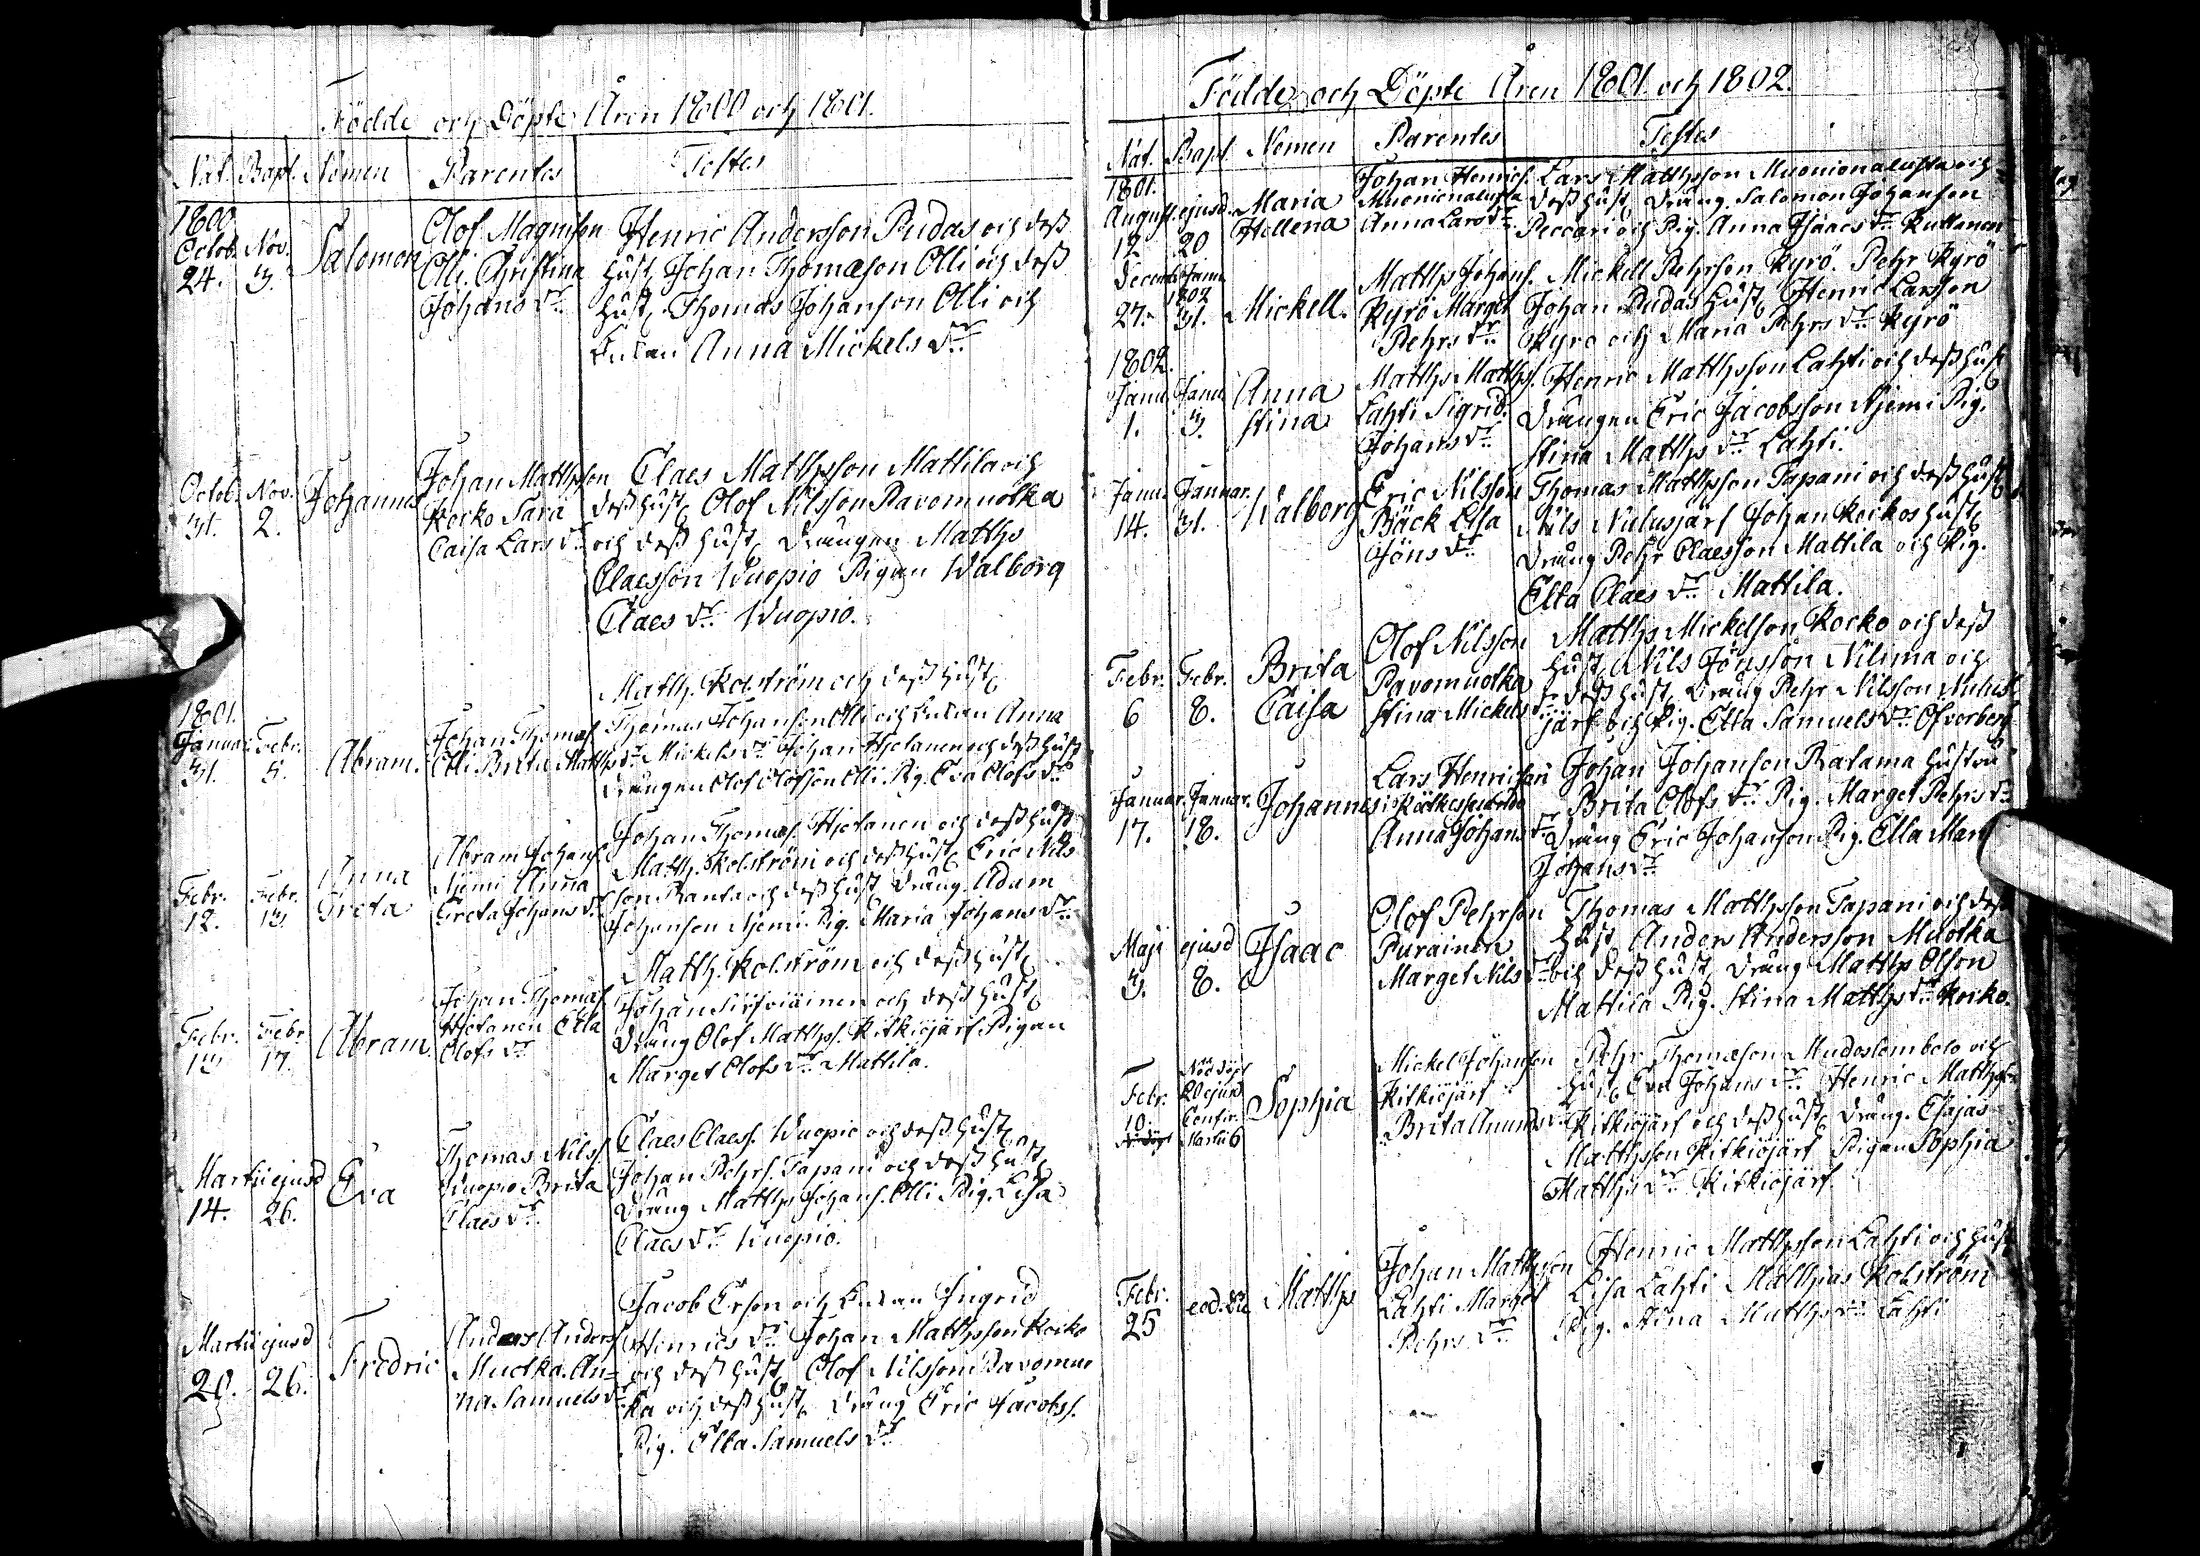 Födde och Döpte Åren 1800 och 1801.
Nat. Bapt. Nomen Parentes Testes
1800.
Octob. 24. Nov. 3. Salomon
Olof Magnuson
Olli. Christina
Johans dr.
Henric Andersson Pudas och dess
hust. Johan Thomæson Olli och dess
hust. Thomas Johanson Olli och
Enkan Anna Mickels dr.
Octob. 31. Nov. 2. Johannes
Johan Matthsson
Kocko Sara
Caisa Lars dr.
Claes Matthsson Mattila och
dess hust. Olof Nilsson Pavomuotka
och dess hust. Drängen Matths
Claesson Wuopio Pigan Walborg
Claes dr. Wuopio.
1801.
Januar. 31. Febr. 5. Abram.
Johan Thomæs.
Olli Brita Matths dr.
Matth. Kolström och dess hust.
Thomas Johanson Olli och Enkan Anna
Mickels dr. Johan Hietanen och dess hust.
Drängen Olof Olofsson Olli Pig. Eva Olofs dr.
Febr. 12. Febr. 13. Anna Greta
Abram Johans.
Niemi Anna
Greta Johans dr.
Johan Thomæs. Hietanen och dess hust
Matth. Kolström och dess hust. Eric Nils
son Ranta och dess hust. Dräng Adam
Johanson Niemi. Pig. Maria Johans dr.
Febr. 13 Febr 17. Abram.
Johan Thomæs.
Hietanen Ella
Olofs dr.
Matth. Kolström och dess hust.
Johan och dess hust.
Dräng Olof Matths. Kitkiöjärf. Pigan
Marget Olofs dr. Mattila.
Martii 14. ejusd 26. Eva
Thomas Nilss.
Wuopio Brita
Claes dr.
Claes Claess. Wuopio och dess hust.
Johan Pehrs. Tapani och dess hust.
Dräng Matths Johans. Olli Pig. Lisa
Claes dr. Wuopio.
Martii 20. ejusd 26. Fredric
Anders Anders.
Muotka. An-
na Samuels dr.
Jacob Erson och Enkan Ingrid
Henrics dr. Johan Matthsson Kocko
och dess hust. Olof Nilsson Pavomuo
ka och dess hust. Dräng Eric Jacobss.
Pig. Ella Samuels dr.
Födde och Döpte Åren 1801 och 1802.
Nat. Bapt. Nomen Parentes Testes
1801.
August. 12 ejusd. 20 Maria Hellena
Johan Henrics.
Muonionalusta
Anna Lars dr.
Lars Matthsson Muonionalusta och
dess hust. Dräng. Salomon Johanson
Peccari och Pig. Anna Isaacs dr.
Decemb. 27. Janu. 1802 31. Mickell.
Matths Johans.
Kyrö Marget
Pehrs dr.
Mickell Pehrson Kyrö. Pehr Kyrö
Johan Pudas hust. Henric Larsson
Kyrö och Maria Pehrs dr. Kyrö
1802.
Janu. 1. Janu. 3. Anna Stina
Matths Matths.
Lahti Sigrid.
Johans dr.
Henric Matthsson Lahti och dess hust
Drängen Eric Jacobsson Niemi Pig.
Stina Matths dr. Lahti.
Janu. 14. Januar. 31. Walborg
Eric Nilsson
Bäck Lisa
Jöns dr.
Thomas Matthsson Tapani och dess hust.
Nils Nulusjärf Johan Kockos hust.
Dräng Pehr Claesson Mattila och Pig.
Ella Claes dr. Mattila.
Febr. 6 Febr. 8. Brita Caisa
Olof Nilsson
Pavomuotka
Stina Mickels dr.
Matths Mickelson Kocko och dess
hust. Nils Jönsson Niluna och
dess hust. Dräng Pehr Nilsson Nulus
järf och Pig. Ella Samuels dr. Öfverberg
Januar. 17. Januar. 18. Johannes
Lars Henricson
Anna Johans dr.
Johan Johanson Ratama hustru
Brita Olofs dr. Pig. Marget Pehrs dr.
Dräng Eric Johanson Pig. Ella Marg
Johans dr.
Maji 3. ejusd 8. Isaac
Olof Pehrson
Purainen
Marget Nils dr.
Thomas Matthsson Tapani och dess
hust. Anders Andersson Muotka
och dess hust. Dräng Matths Olson
Mattila Pig. Stina Matths dr. Kocko.
Febr. 10. Nöddöpt 20 ejusd Confir. Martii 6 Sophia
Mickel Johanson
Kitkiöjärf
Brita Amunds dr.
Pehr Thomæson Muodoslombolo och
hust. Eva Johans dr. Henric Matths.
Kitkiöjärf och dess hust. Dräng. Esajas
Matthsson Kitkiöjärf Pigan Sophia
Matths dr. Kitkiöjärf.
Febr. 25 eod. die Matths
Johan Matthsson
Lahti Marget
Pehrs dr.
Henric Matthsson Lahti och hust.
Lisa Lahti Matthias Kolström
Pig. Stina Matths dr. Lahti